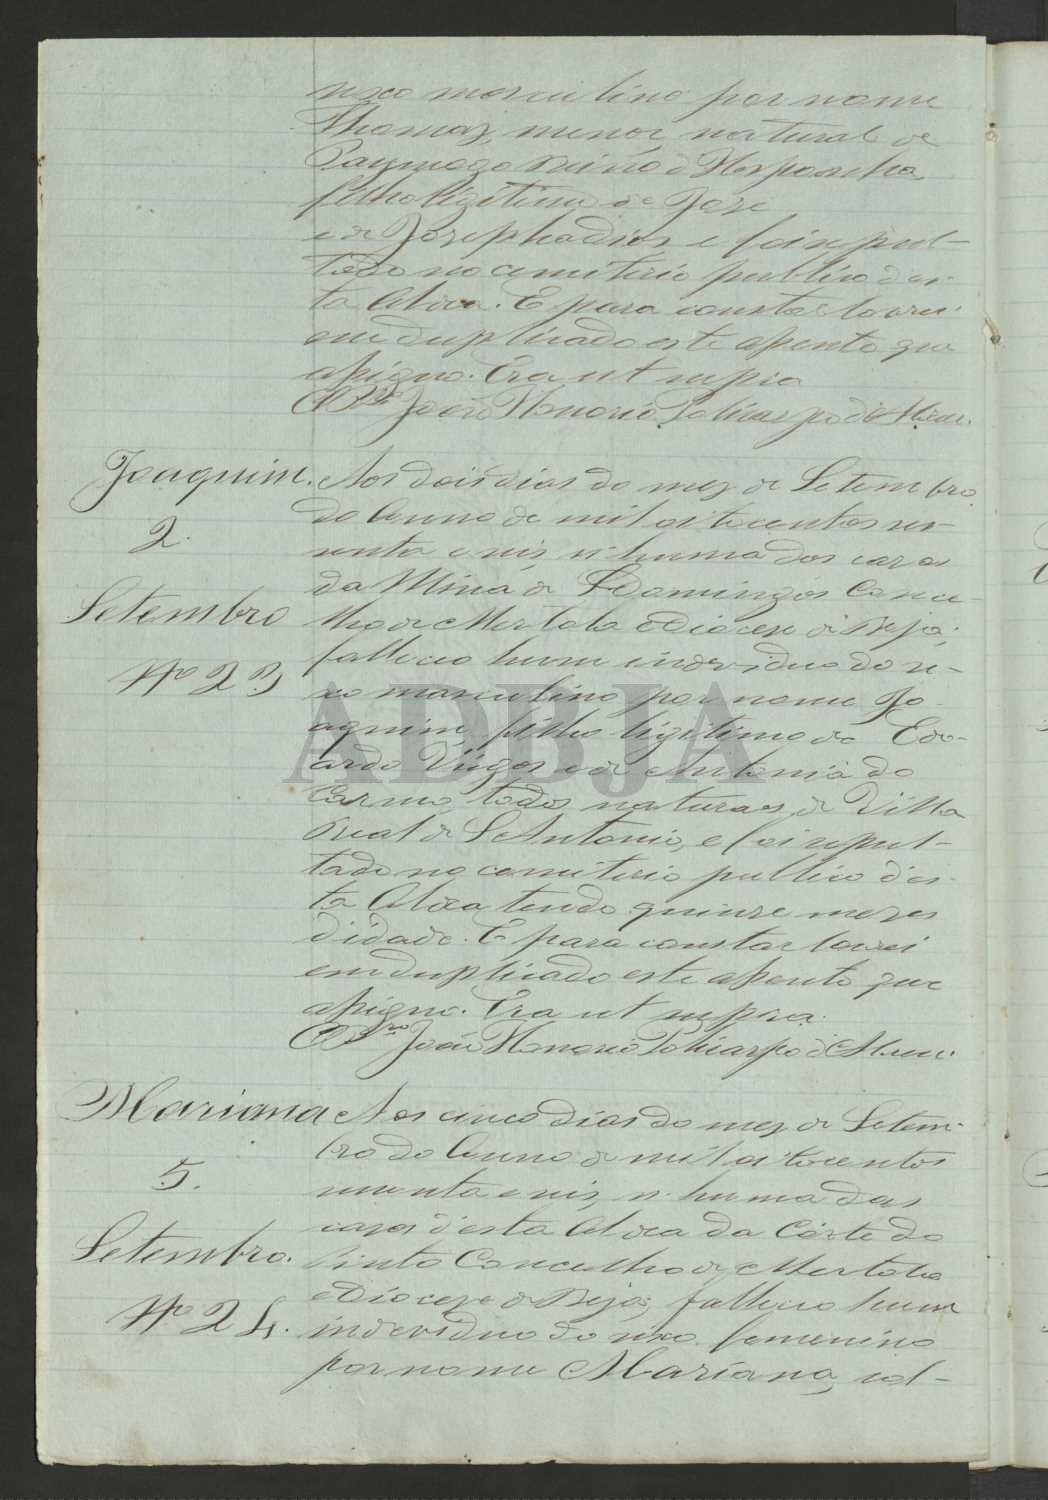 sexo masculino por nome
Thomaz, menor, natural de
Paymogo Reino d'Hespanha
filho ligitimo de Jose
e de Josepha dias e foi sepul-
tado no cemiterio publico des-
ta Aldea. E para constar lavrei
em duplicado este assento que
assigno. Era ut supra
O P.ro João Honorio Policarpo d'
Joaquim. Aos dois dias do mez de Setembro
2. do Anno de mil oitocentos ses-
senta e seis, n'huma das casas
Setembro da Mina de S Domingos Conce-
lho de Mertola e Diocese de Beja,
Nº 23 falleceo hum individuo do se-
xo masculino por nome Jo-
aquim, filho ligitimo de Edu-
ardo e de Antonia do
Carmo, todos naturaes de Villa
Real de S. Antonio, e foi sepul-
tado no cemiterio publico des-
ta Aldea tendo quinse meses
d'idade. E para constar lavrei
em duplicado este assento que
assigno. Era ut supra.
O P.ro João Honorio Policarpo d'
Mariana Aos cinco dias do mez de Setem-
bro do Anno de mil oitocentos
5. sessenta e seis, n'huma das
casas d'esta Aldea da Côrte do
Setembro. Pinto Concelho de Mertola
e Diocese de Beja, falleceo hum
Nº 24. individuo do sexo femenino
por nome Mariana,
ADBJA